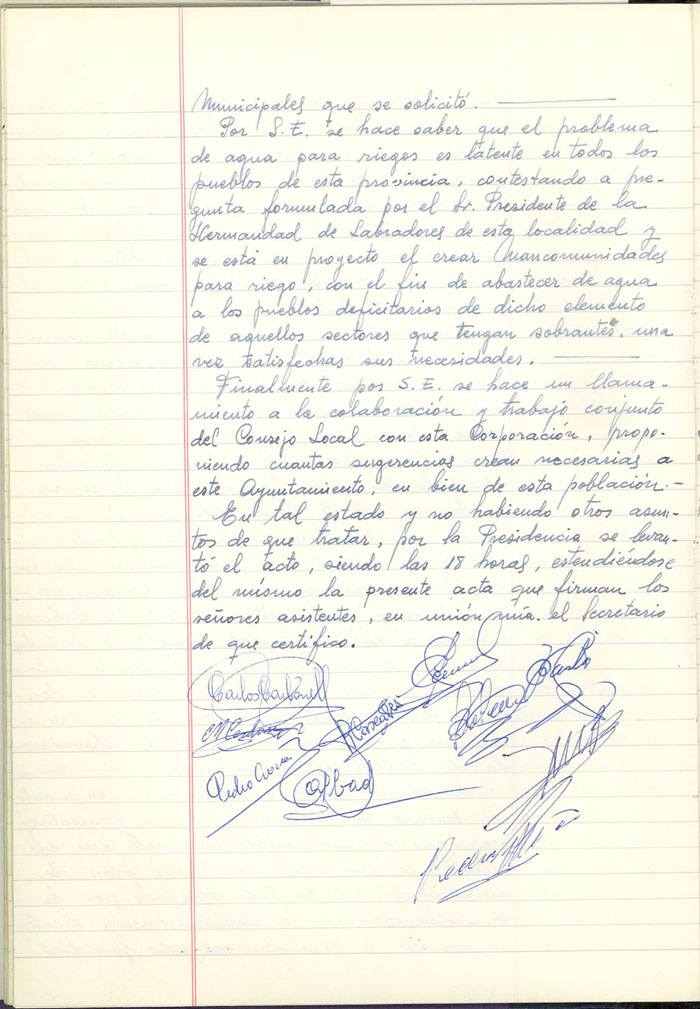 Municipales que se solicitó.
Por S.E. se hace saber que el problema
de agua para riegos es latente en todos los
pueblos de esta provincia, contestando a pre-
gunta formulada por el Sr. Presidente de la
Hermandad de Labradores de esta localidad y
se está en proyecto el crear Mancomunidades
para riego, con el fin de abastecer de agua
a los pueblos deficitarios de dicho elemento
de aquellos sectores que tengan sobrantes, una
vez satisfechas sus necesidades.
Finalmente por S.E. se hace un llama-
miento a la colaboración y trabajo conjunto
del Consejo Local con esta Corporación, propo-
niendo cuantas sugerencias crean necesarias a
este Ayuntamiento, en bien de esta población.-
En tal estado y no habiendo otros asun-
tos de que tratar, por la Presidencia se levan-
tó el acto, siendo las 18 horas, estendiéndose
del mismo la presente acta que firman los
señores asistentes, en unión mía. el Secretario
de que certifico.
Carlos Carbonell
Pedro
Abad
Pedro